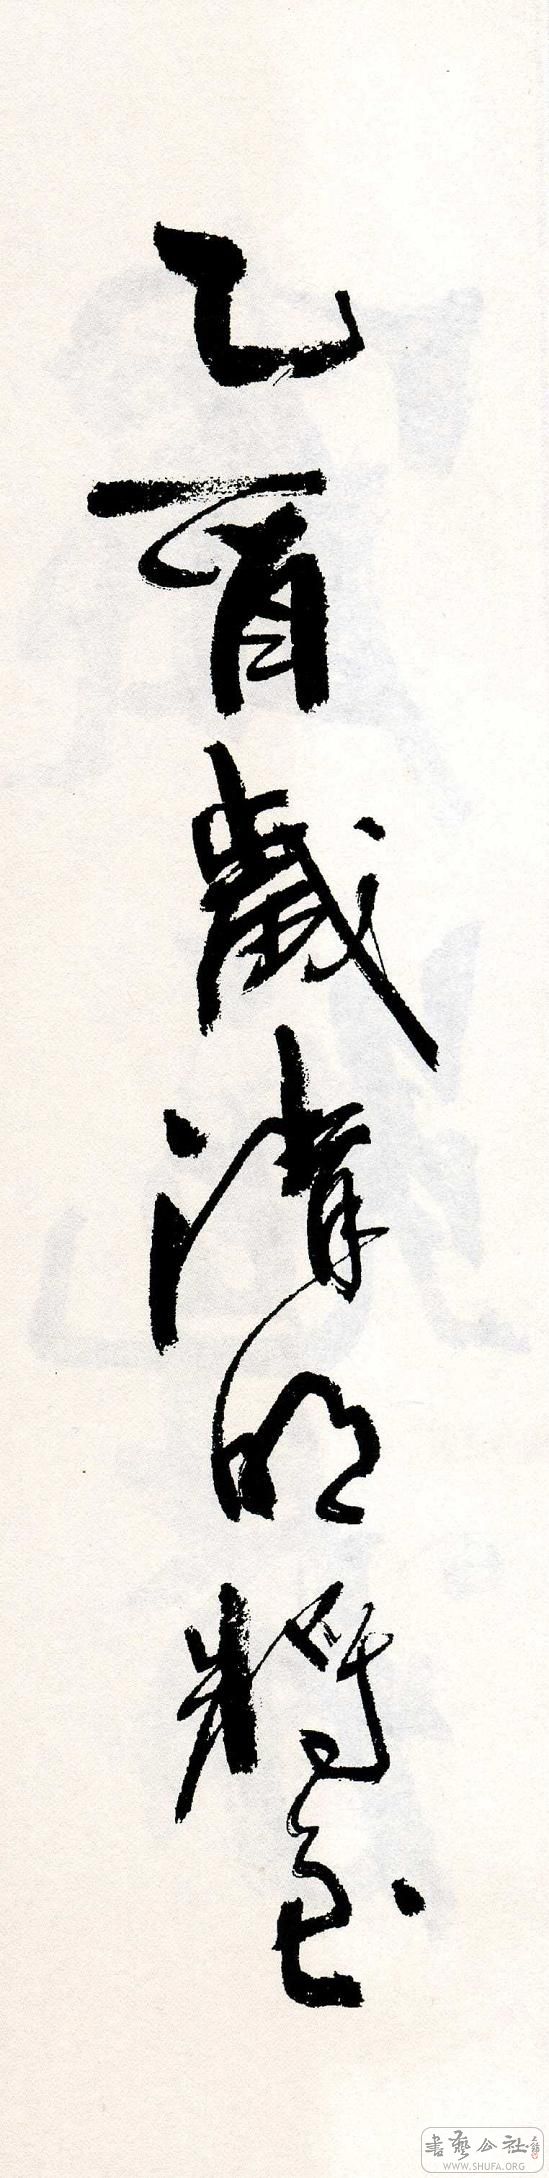 乙酉歲清明將至
書藝公社
WWW.SHUFA.ORG